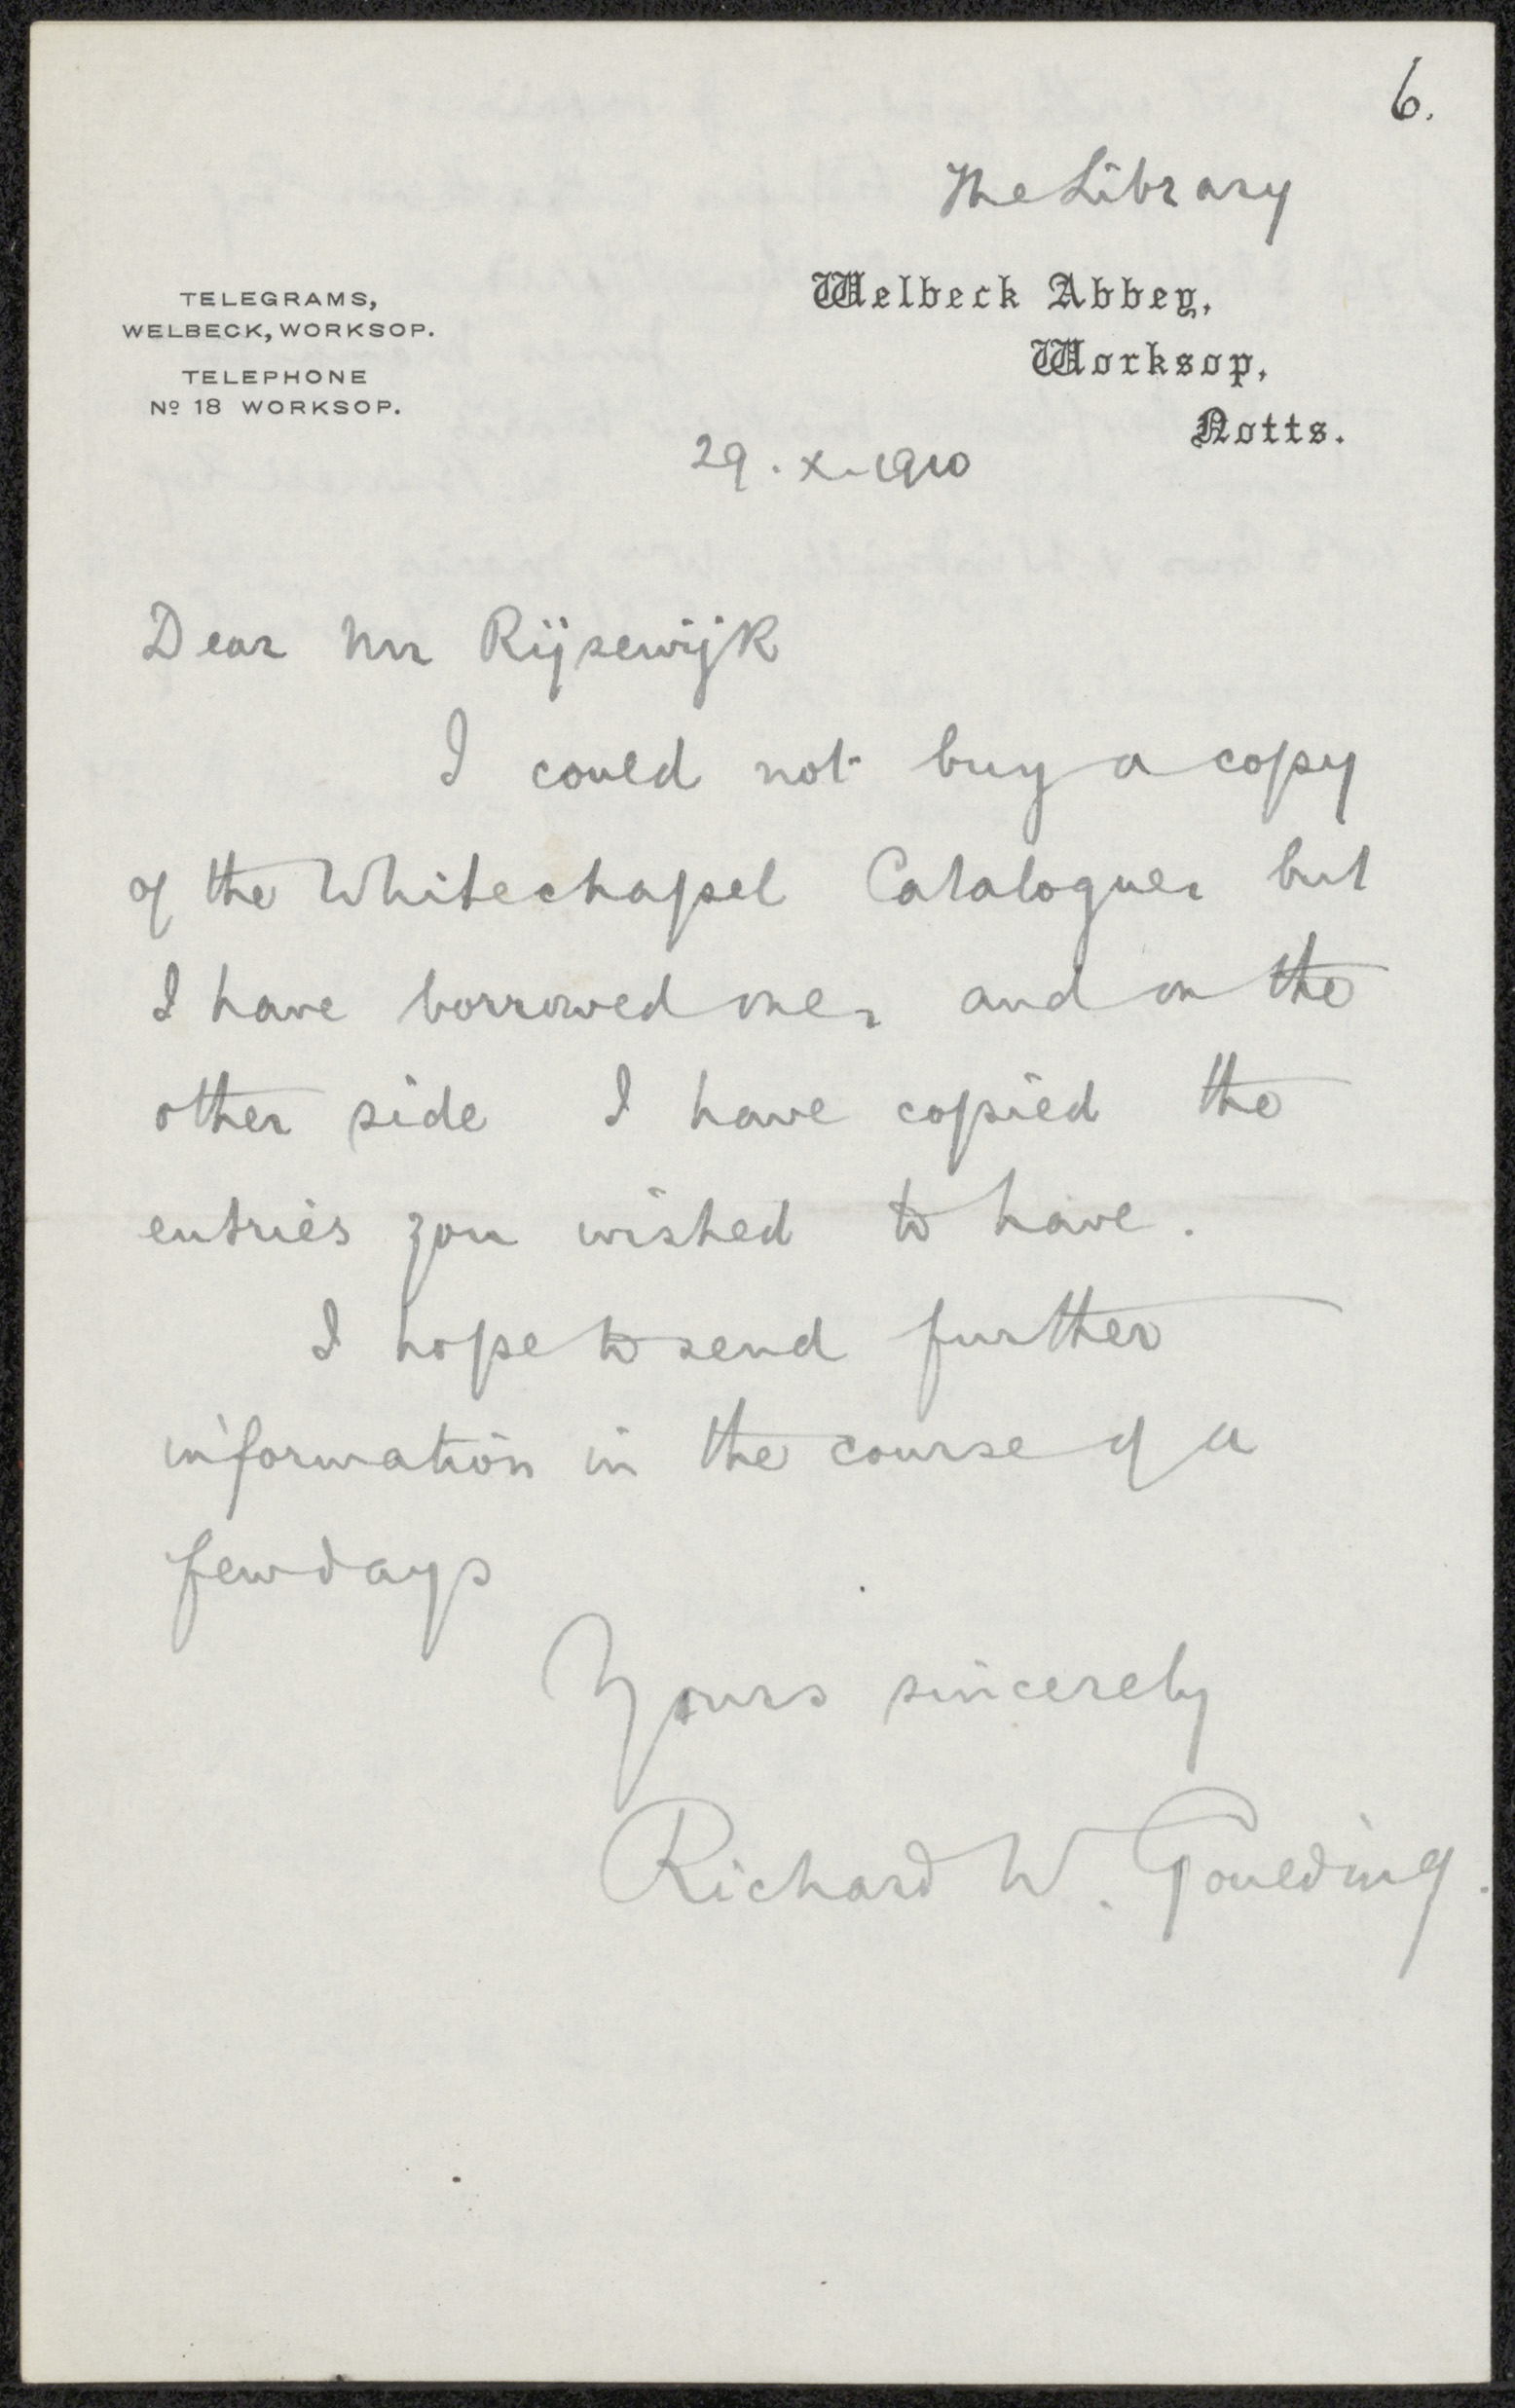 6.
The Library
TELEGRAMS,
WELBECK, WORKSOP.
TELEPHONE
Nº 18 WORKSOP.
Welbeck Abbey,
Worksop,
Notts.
29. X. 1910
Dear Mr Rijsewijk
I could not buy a copy
of the Whitechapel Catalogue, but
I have borrowed one, and on the
other side I have copied the
entries you wished to have.
I hope to send further
information in the course of a
few days
Yours sincerely
Richard W. Goulding.